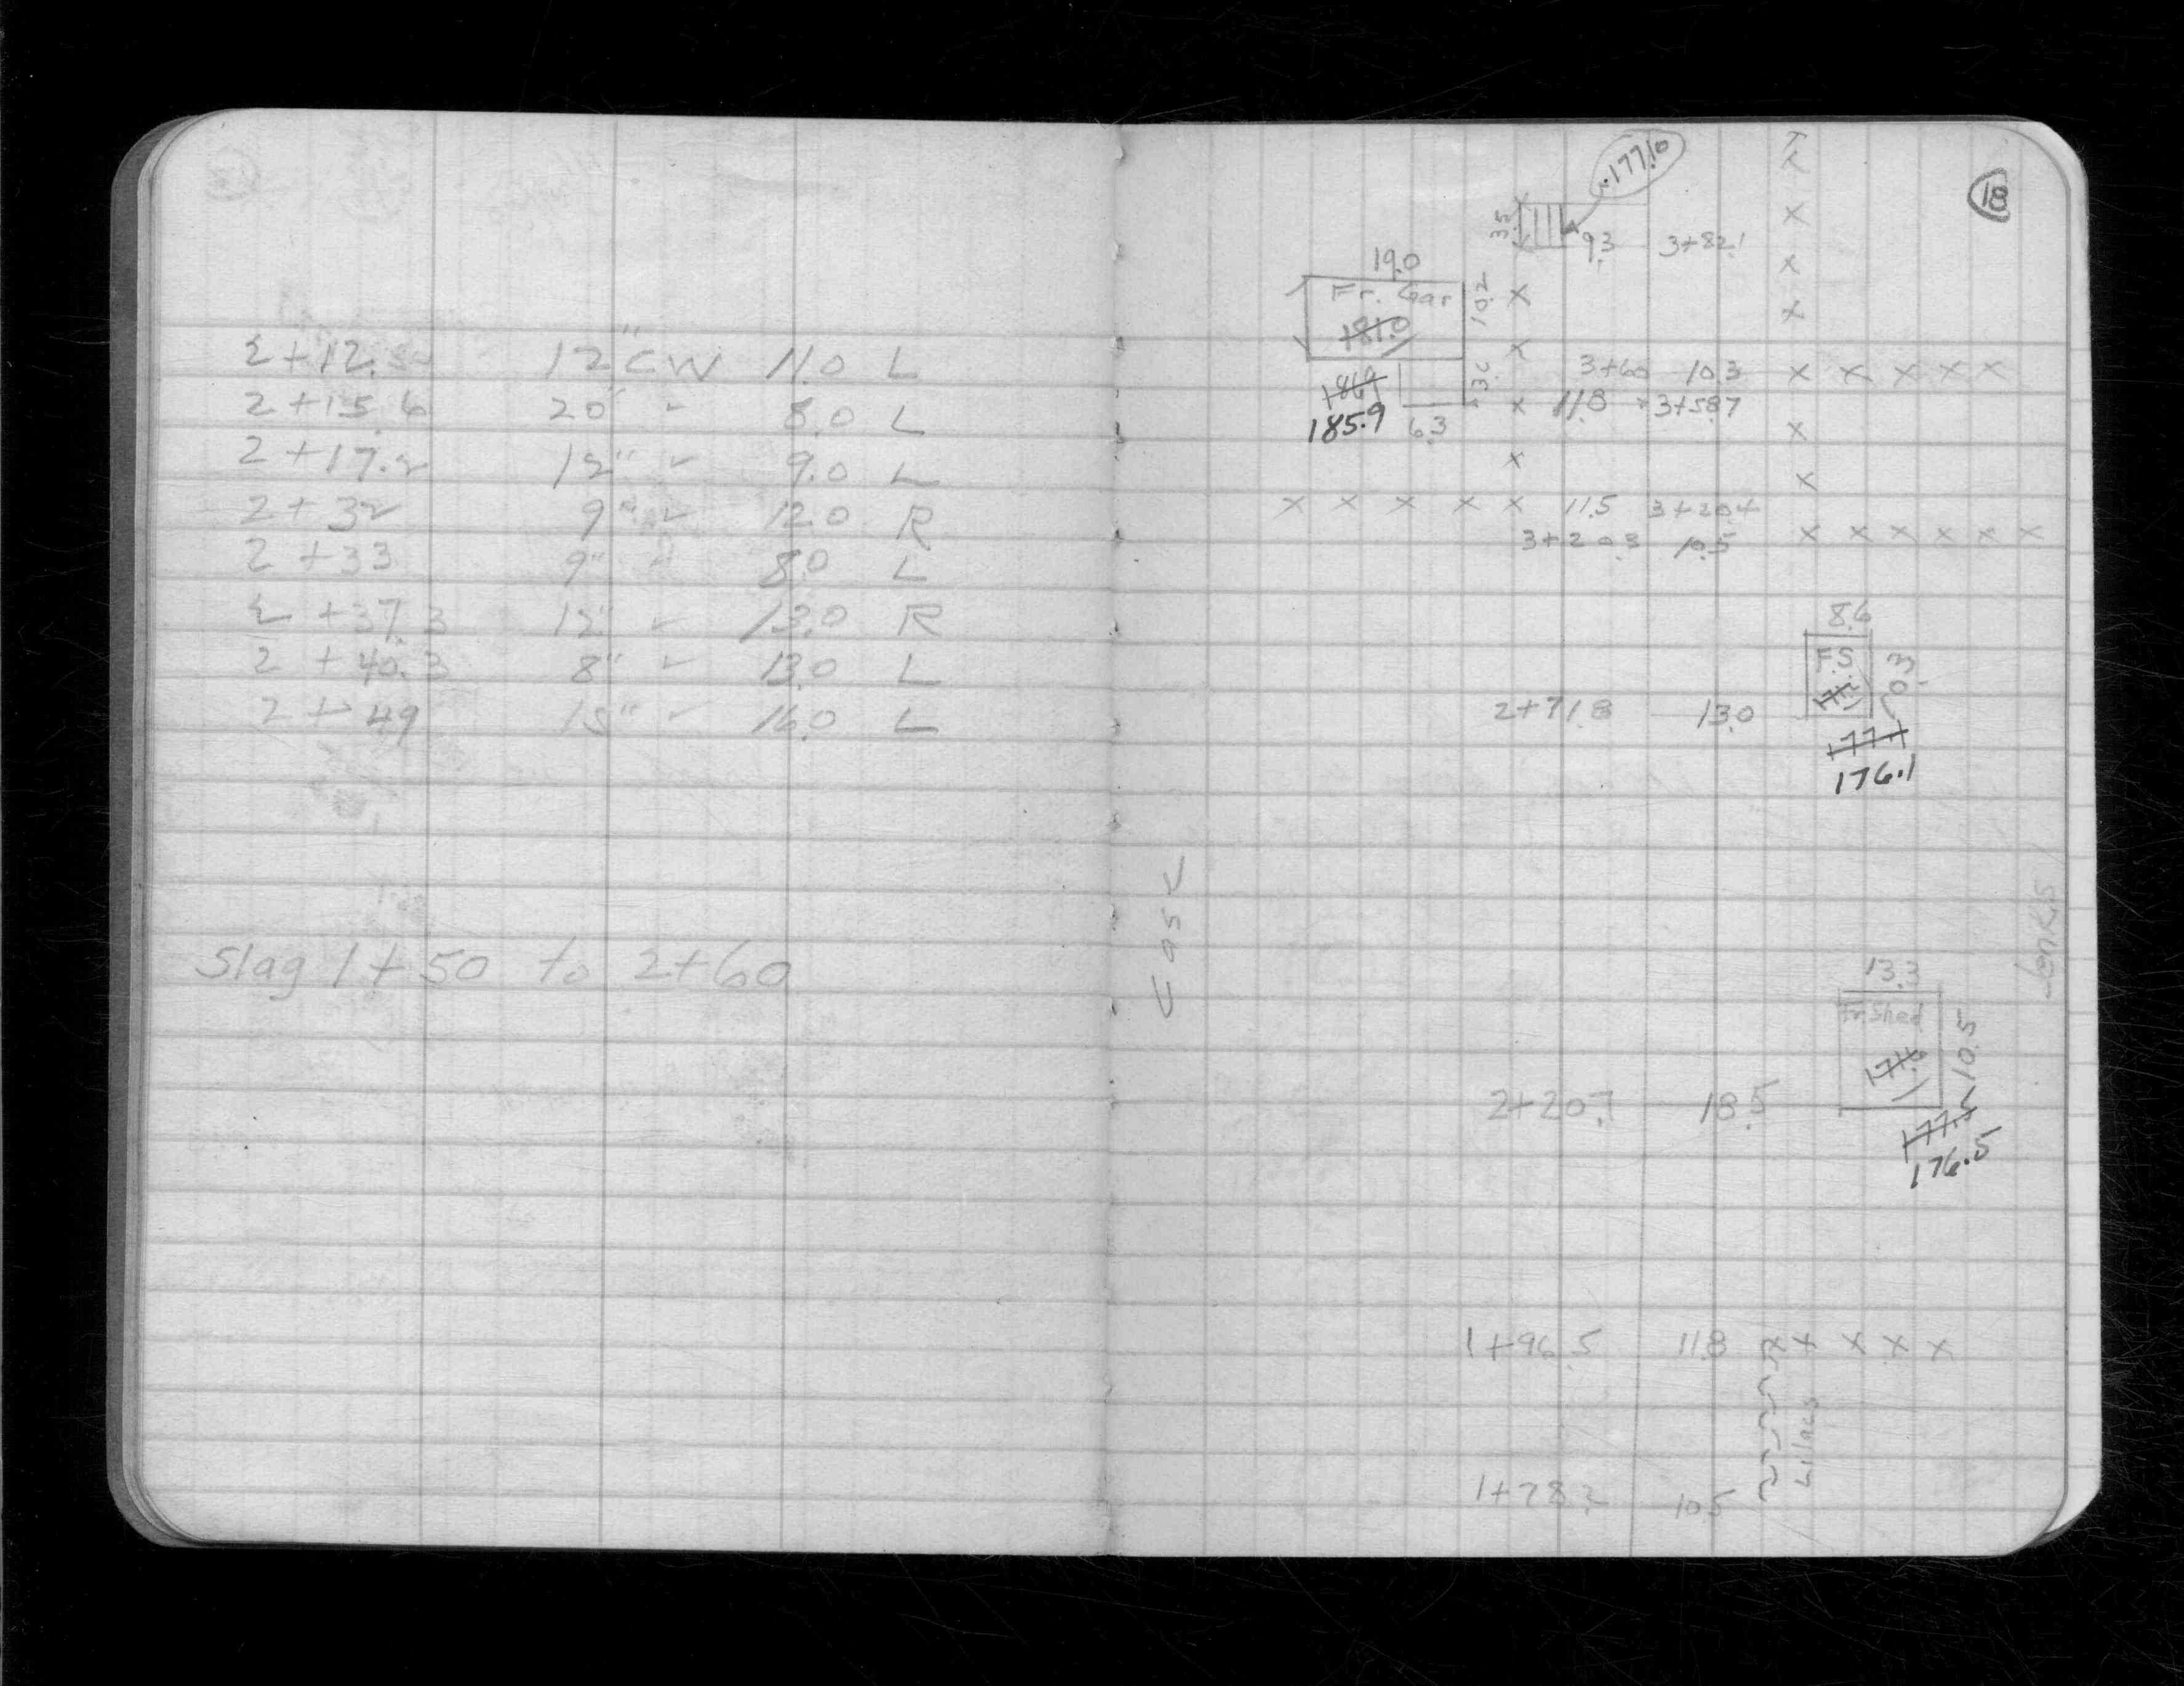 2+12.5 12" CW 11.0 L
2+15.6 20" " 8.0 L
2+17.2 12" " 9.0 L
2+32 9" " 12.0 R
2+33 9" " 8.0 L
2+37.3 12" " 13.0 R
2+40.3 8" " 13.0 L
2+49 15" " 16.0 L
Slag 1+50 to 2+60
18
177.0
3.5
9.3 3+82.1
19.0
Fr. Gar
181.0
10.2
3+60 10.3
11.8 3+58.7
185.9 6.3
11.5 3+20.4
3+20.3 10.5
8.6
F.S.
10.3
2+71.8 13.0
176.1
13.3
Fr. Shed
10.5
2+20.7 18.5
176.5
1+96.5 11.8
Lilacs
1+78.2 10.5